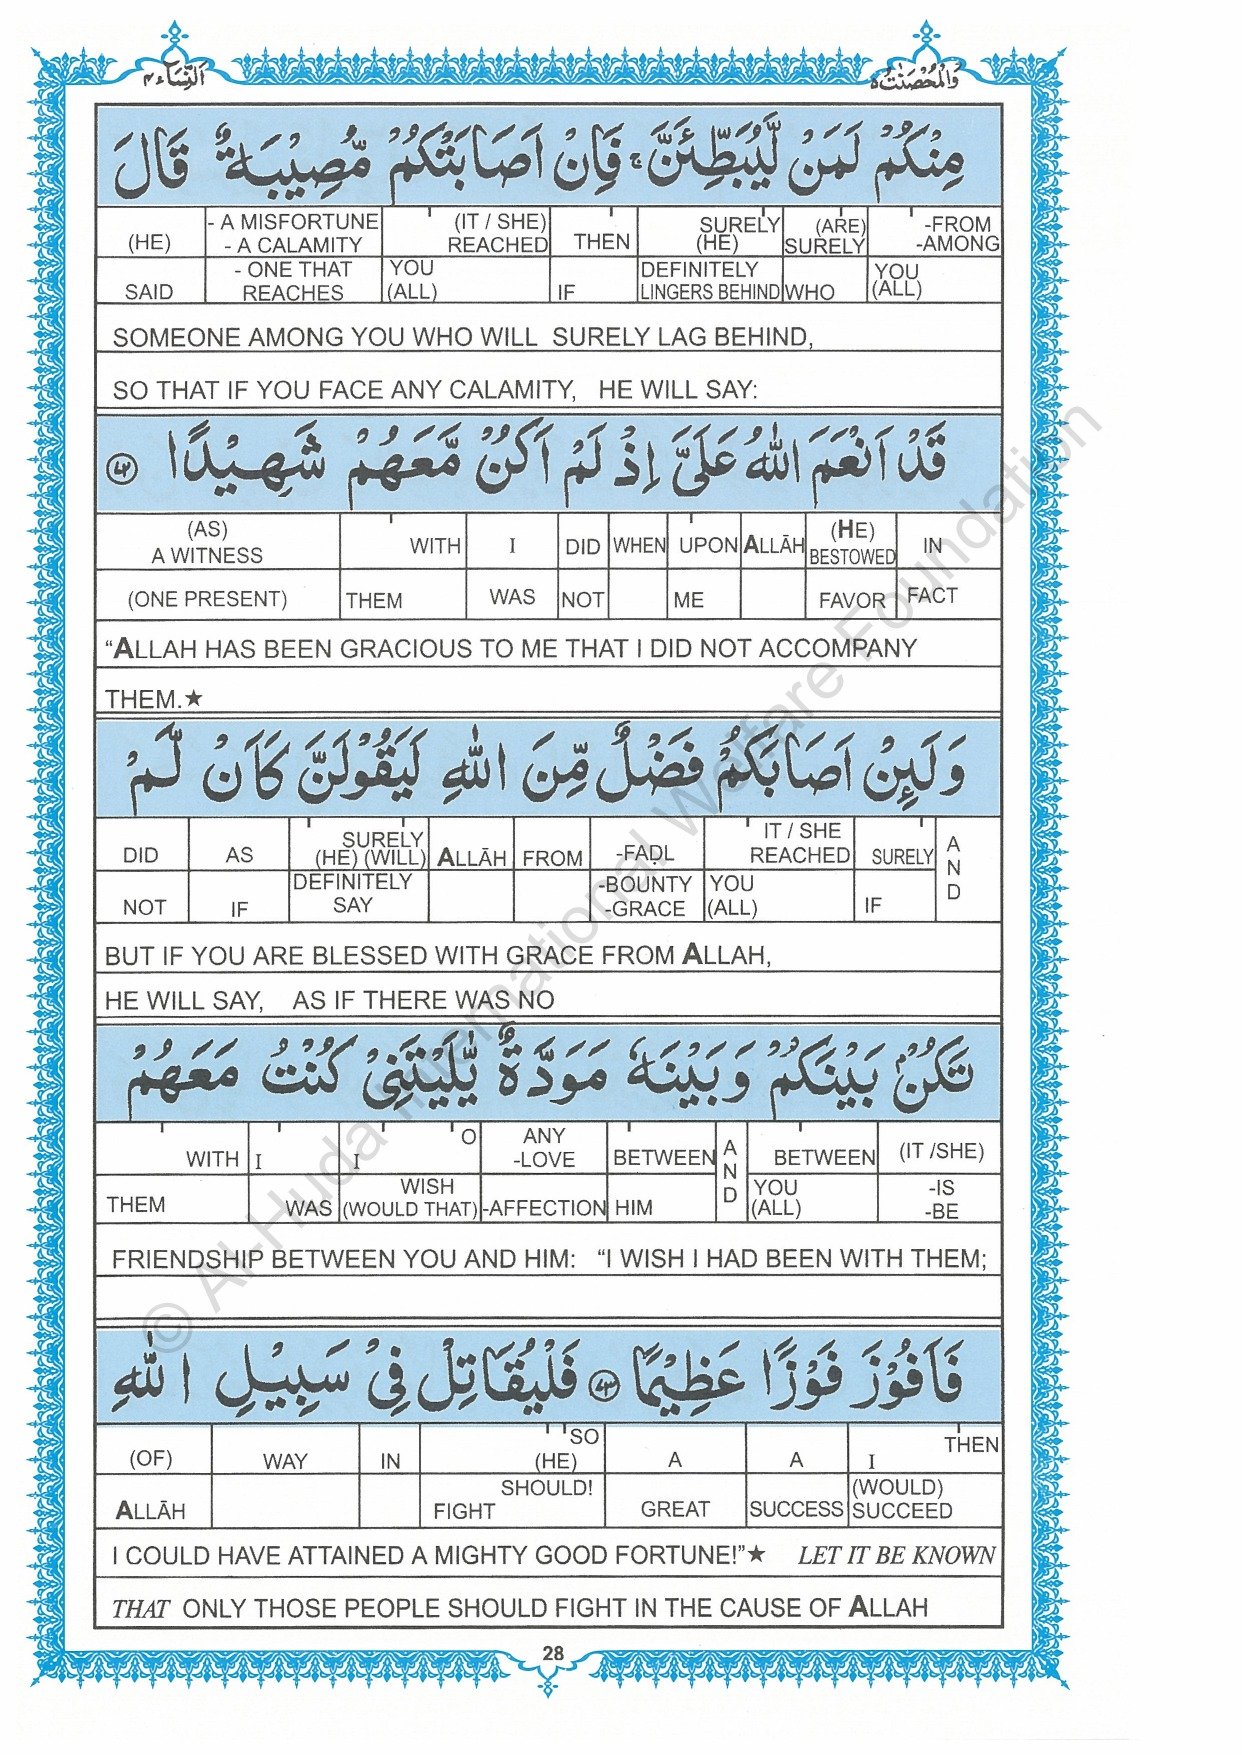 النِّسَاء ٤ وَالْمُحْصَنٰتُ ٥
مِنْكُمْ لَمَنْ لَّيُبَطِّئَنَّ ۚ فَاِنْ اَصَابَتْكُمْ مُّصِيْبَةٌ قَالَ
(HE) - A MISFORTUNE (IT / SHE) THEN SURELY (ARE) -FROM
- A CALAMITY REACHED (HE) SURELY -AMONG
- ONE THAT YOU DEFINITELY YOU
SAID REACHES (ALL) IF LINGERS BEHIND WHO (ALL)
SOMEONE AMONG YOU WHO WILL SURELY LAG BEHIND,
SO THAT IF YOU FACE ANY CALAMITY, HE WILL SAY:
قَدْ اَنْعَمَ اللّٰهُ عَلَيَّ اِذْ لَمْ اَكُنْ مَّعَهُمْ شَهِيْدًا ۷۲
(AS) (HE)
A WITNESS WITH I DID WHEN UPON ALLĀH BESTOWED IN
(ONE PRESENT) THEM WAS NOT ME FAVOR FACT
“ALLAH HAS BEEN GRACIOUS TO ME THAT I DID NOT ACCOMPANY
THEM.★
وَلَئِنْ اَصَابَكُمْ فَضْلٌ مِّنَ اللّٰهِ لَيَقُوْلَنَّ كَاَنْ لَّمْ
SURELY IT / SHE A
DID AS (HE) (WILL) ALLĀH FROM -FAḌL REACHED SURELY N
DEFINITELY -BOUNTY YOU D
NOT IF SAY -GRACE (ALL) IF
BUT IF YOU ARE BLESSED WITH GRACE FROM ALLAH,
HE WILL SAY, AS IF THERE WAS NO
تَكُنْۢ بَيْنَكُمْ وَبَيْنَهٗ مَوَدَّةٌ يّٰلَيْتَنِيْ كُنْتُ مَعَهُمْ
O ANY A
WITH I I -LOVE BETWEEN N BETWEEN (IT /SHE)
WISH D YOU -IS
THEM WAS (WOULD THAT) -AFFECTION HIM (ALL) -BE
FRIENDSHIP BETWEEN YOU AND HIM: “I WISH I HAD BEEN WITH THEM;
فَاَفُوْزَ فَوْزًا عَظِيْمًا ۷۳ فَلْيُقَاتِلْ فِيْ سَبِيْلِ اللّٰهِ
SO THEN
(OF) WAY IN (HE) A A I
SHOULD! (WOULD)
ALLĀH FIGHT GREAT SUCCESS SUCCEED
I COULD HAVE ATTAINED A MIGHTY GOOD FORTUNE!”★ LET IT BE KNOWN
THAT ONLY THOSE PEOPLE SHOULD FIGHT IN THE CAUSE OF ALLAH
28
© Al-Huda International Welfare Foundation